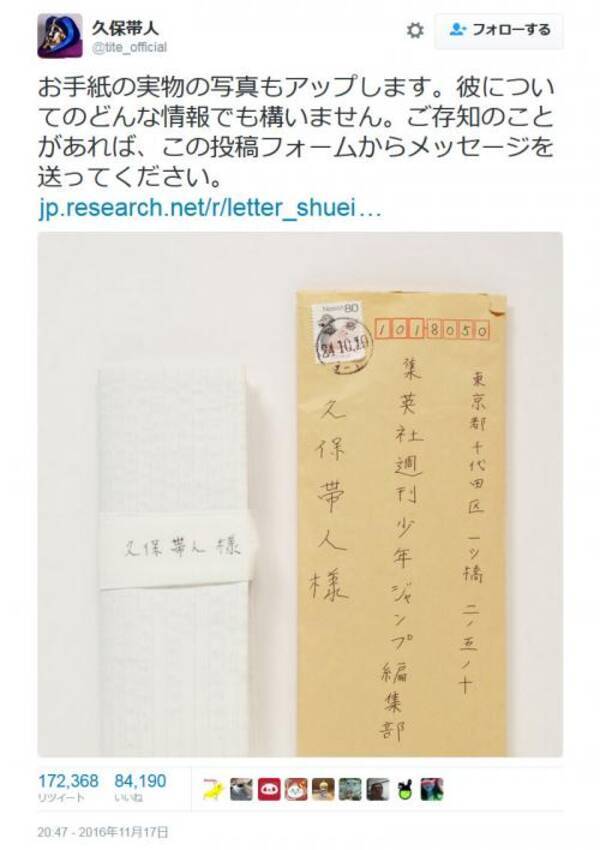 久保帯人
@tite_official
フォローする
お手紙の実物の写真もアップします。彼につい
てのどんな情報でも構いません。ご存知のこと
があれば、この投稿フォームからメッセージを
送ってください。
jp.research.net/r/letter_shuei…
Nippon 80
24.10.19
1018050
東京都千代田区一ツ橋二ノ五ノ十
集英社週刊少年ジャンプ編集部
久保帯人様
久保帯人様
172,368 84,190
リツイート いいね
20:47 - 2016年11月17日